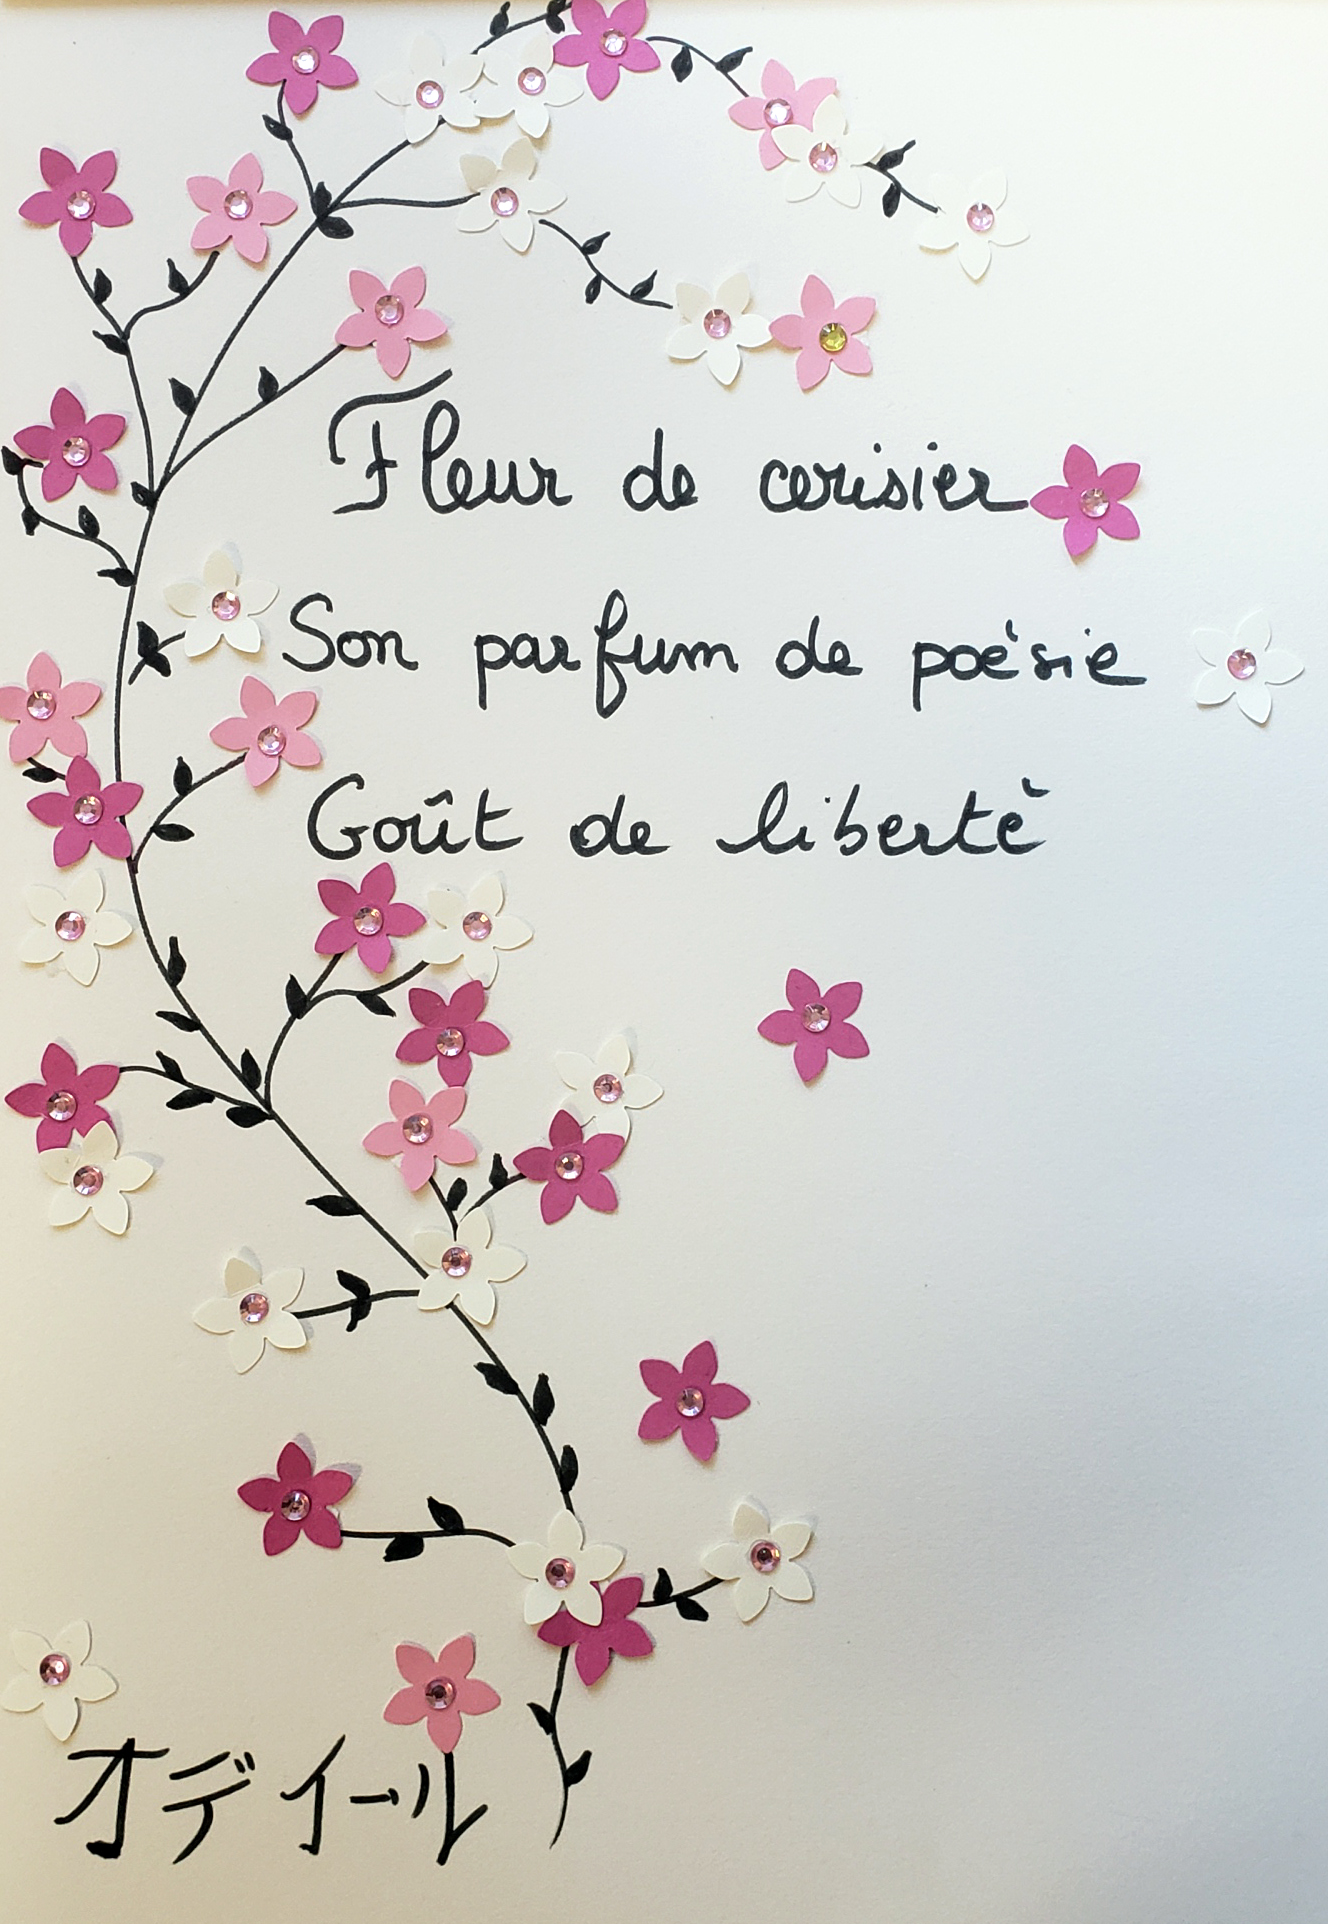 Fleur de cerisier
Son parfum de poésie
Goût de liberté
オディール